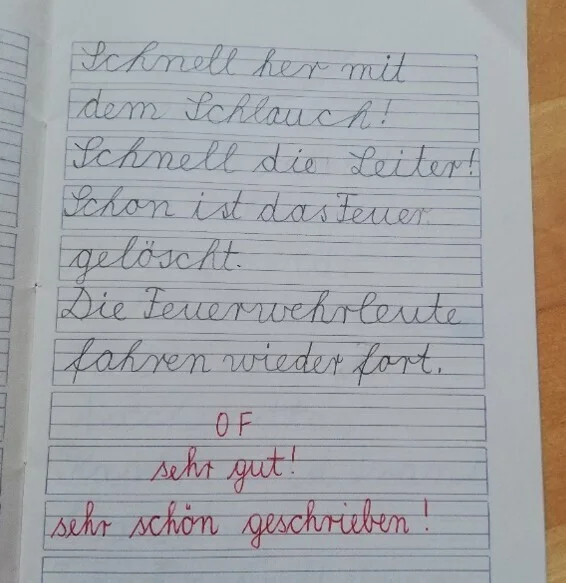 Schnell her mit
dem Schlauch!
Schnell die Leiter!
Schon ist das Feuer
gelöscht.
Die Feuerwehrleute
fahren wieder fort.
OF
sehr gut!
sehr schön geschrieben!